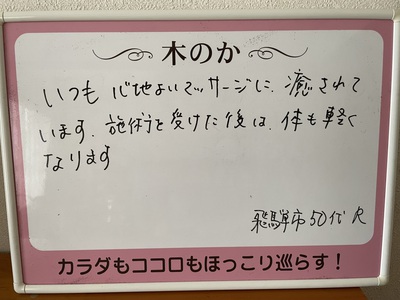 木のか
いつも 心地よいマッサージに、癒されて
います。施術を受けた後は、体も軽く
なります
飛騨市 50代 R
カラダもココロもほっこり巡らす！